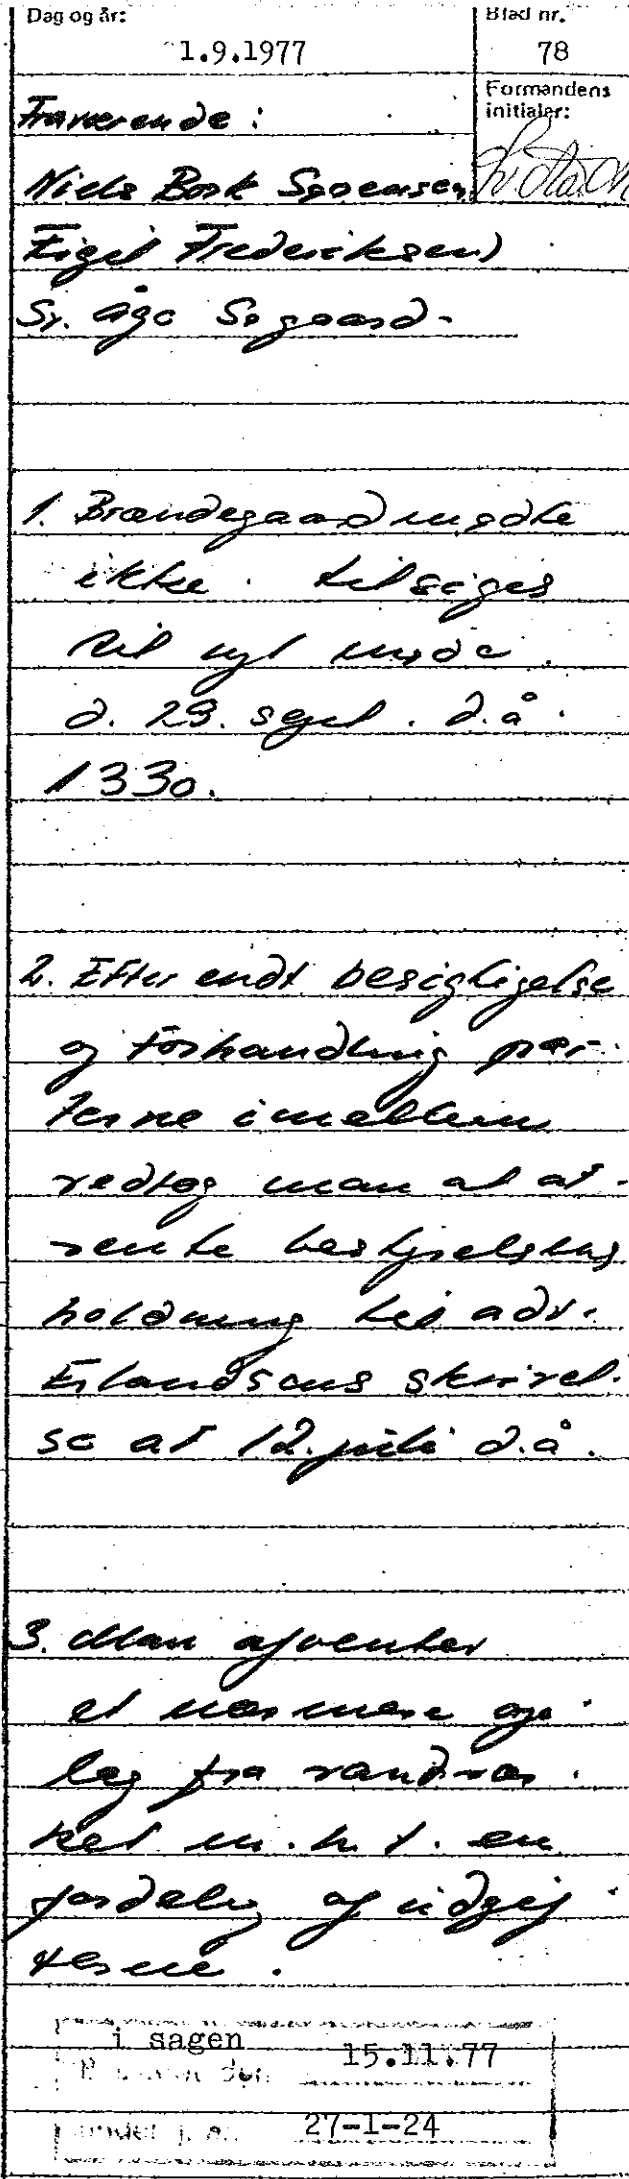 Dag og år:
Blad nr.
1.9.1977
78
Formandens
initialer:
Fraværende:
Niels Bork Spoensen,
Eigil Frederiksen,
Sv. Åge Søgaard-
1. Brændegaard mødte
ikke. tilsiges
til nyt møde
d. 29. sept. d.å.
1330.
2. Efter endt besigtigelse
og forhandling par-
terne imellem
vedtog man at af-
vente bestyrelsens
holdning til adv.
Erlandsens skrivel-
se af 12. juli d.å.
3. Man afventer
et nærmere op-
læg fra vandvær-
ket m.h.t. en
fordeling af udgif-
terne.
i sagen
15.11.77
under j. nr.
27-1-24